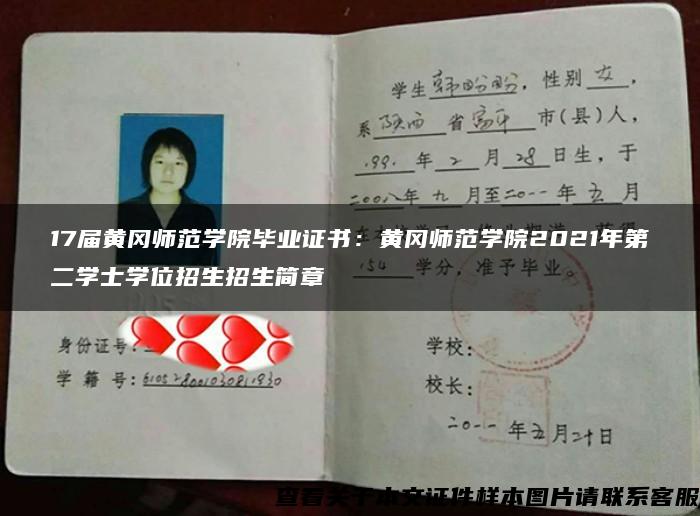 学生韩盼盼，性别女，
系陕西省富平市(县)人，
1991年2月28日生，于
二00八年九月至二0一一年五月
17届黄冈师范学院毕业证书：黄冈师范学院2021年第
二学士学位招生招生简章
154学分，准予毕业。
身份证号：
学籍号：
学校：
校长：
二0一一年五月二十日
查看关于本文证件样本图片请联系客服